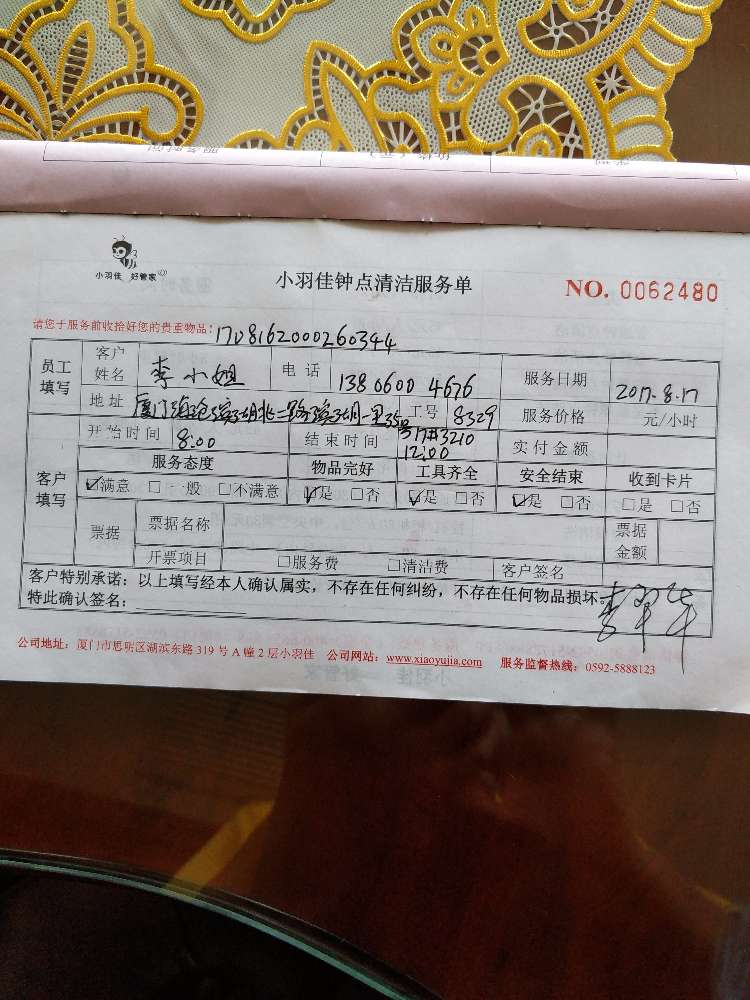 小羽佳 好管家
小羽佳钟点清洁服务单
NO. 0062480
请您于服务前收拾好您的贵重物品! 170816200260344
员工填写 客户姓名 李小姐 电话 13806004676 服务日期 2017.8.17
地址 厦门海沧滨湖北二路滨湖一里35号17#3210 工号 8329 服务价格 元/小时
开始时间 8:00 结束时间 12:00 实付金额
客户填写 服务态度 物品完好 工具齐全 安全结束 收到卡片
☑满意 □一般 □不满意 ☑是 □否 ☑是 □否 ☑是 □否 □是 □否
票据 票据名称 票据金额
开票项目 □服务费 □清洁费 客户签名
客户特别承诺：以上填写经本人确认属实，不存在任何纠纷，不存在任何物品损坏。
特此确认签名：
公司地址：厦门市思明区湖滨东路 319 号 A 幢 2 层小羽佳 公司网站：www.xiaoyujia.com 服务监督热线：0592-5888123